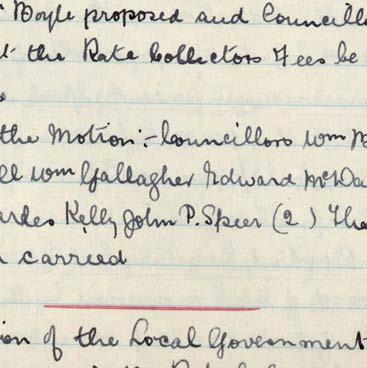 Boyle proposed and Councill
the Rate Collectors Fees be
the Motion:- Councillors Wm B
ll Wm Gallagher Edward McDa
Kelly John P. Speer (2) The
carried
ion of the Local Government